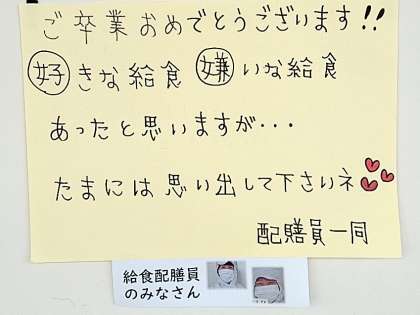 ご卒業おめでとうございます!!
好きな給食 嫌いな給食
あったと思いますが・・・
たまには思い出して下さいネ
配膳員一同
給食配膳員
のみなさん